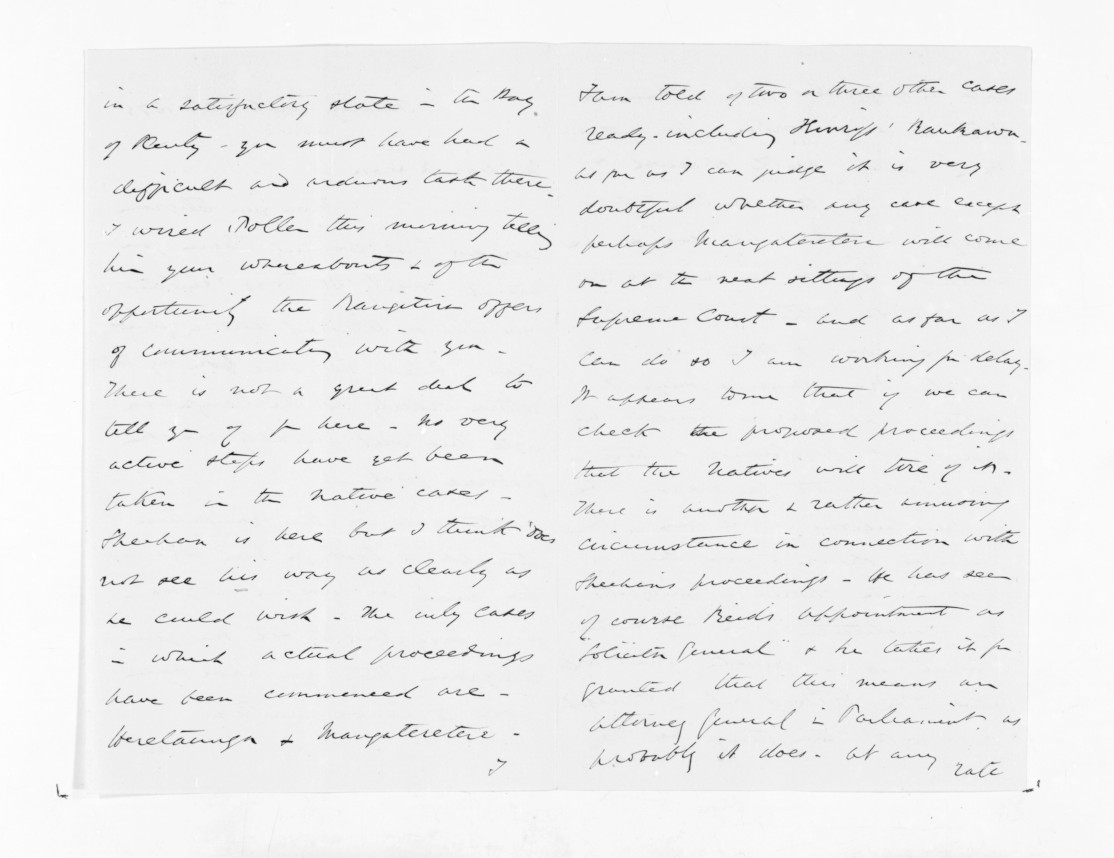 in a satisfactory state in the Bay
of Plenty - you must have had a
difficult and arduous task there -
I wired Pollen this morning telling
him your whereabouts & of the
opportunity the Rangitira offers
of communicating with you -
There is not a great deal to
tell you of fr here - No very
active steps have yet been
taken in the native cases -
Sheehan is here but I think does
not see his way as clearly as
he could wish - The only cases
in which actual proceedings
have been commenced are -
Heretaunga & Mangateretere -
I
I am told of two or three other cases
ready - including Raukawa -
as far as I can judge it is very
doubtful whether any case except
perhaps Mangateretere will come
on at the next sittings of the
Supreme Court - and as far as I
can do so I am working for delay -
It appears to me that if we can
check the proposed proceedings
that the Natives will tire of it -
There is another & rather amusing
circumstance in connection with
Sheehan's proceedings - He has seen
of course Reid's appointment as
"Solicitor General" & he takes it for
granted that this means an
attorney General in Parliament as
probably it does - at any
rate